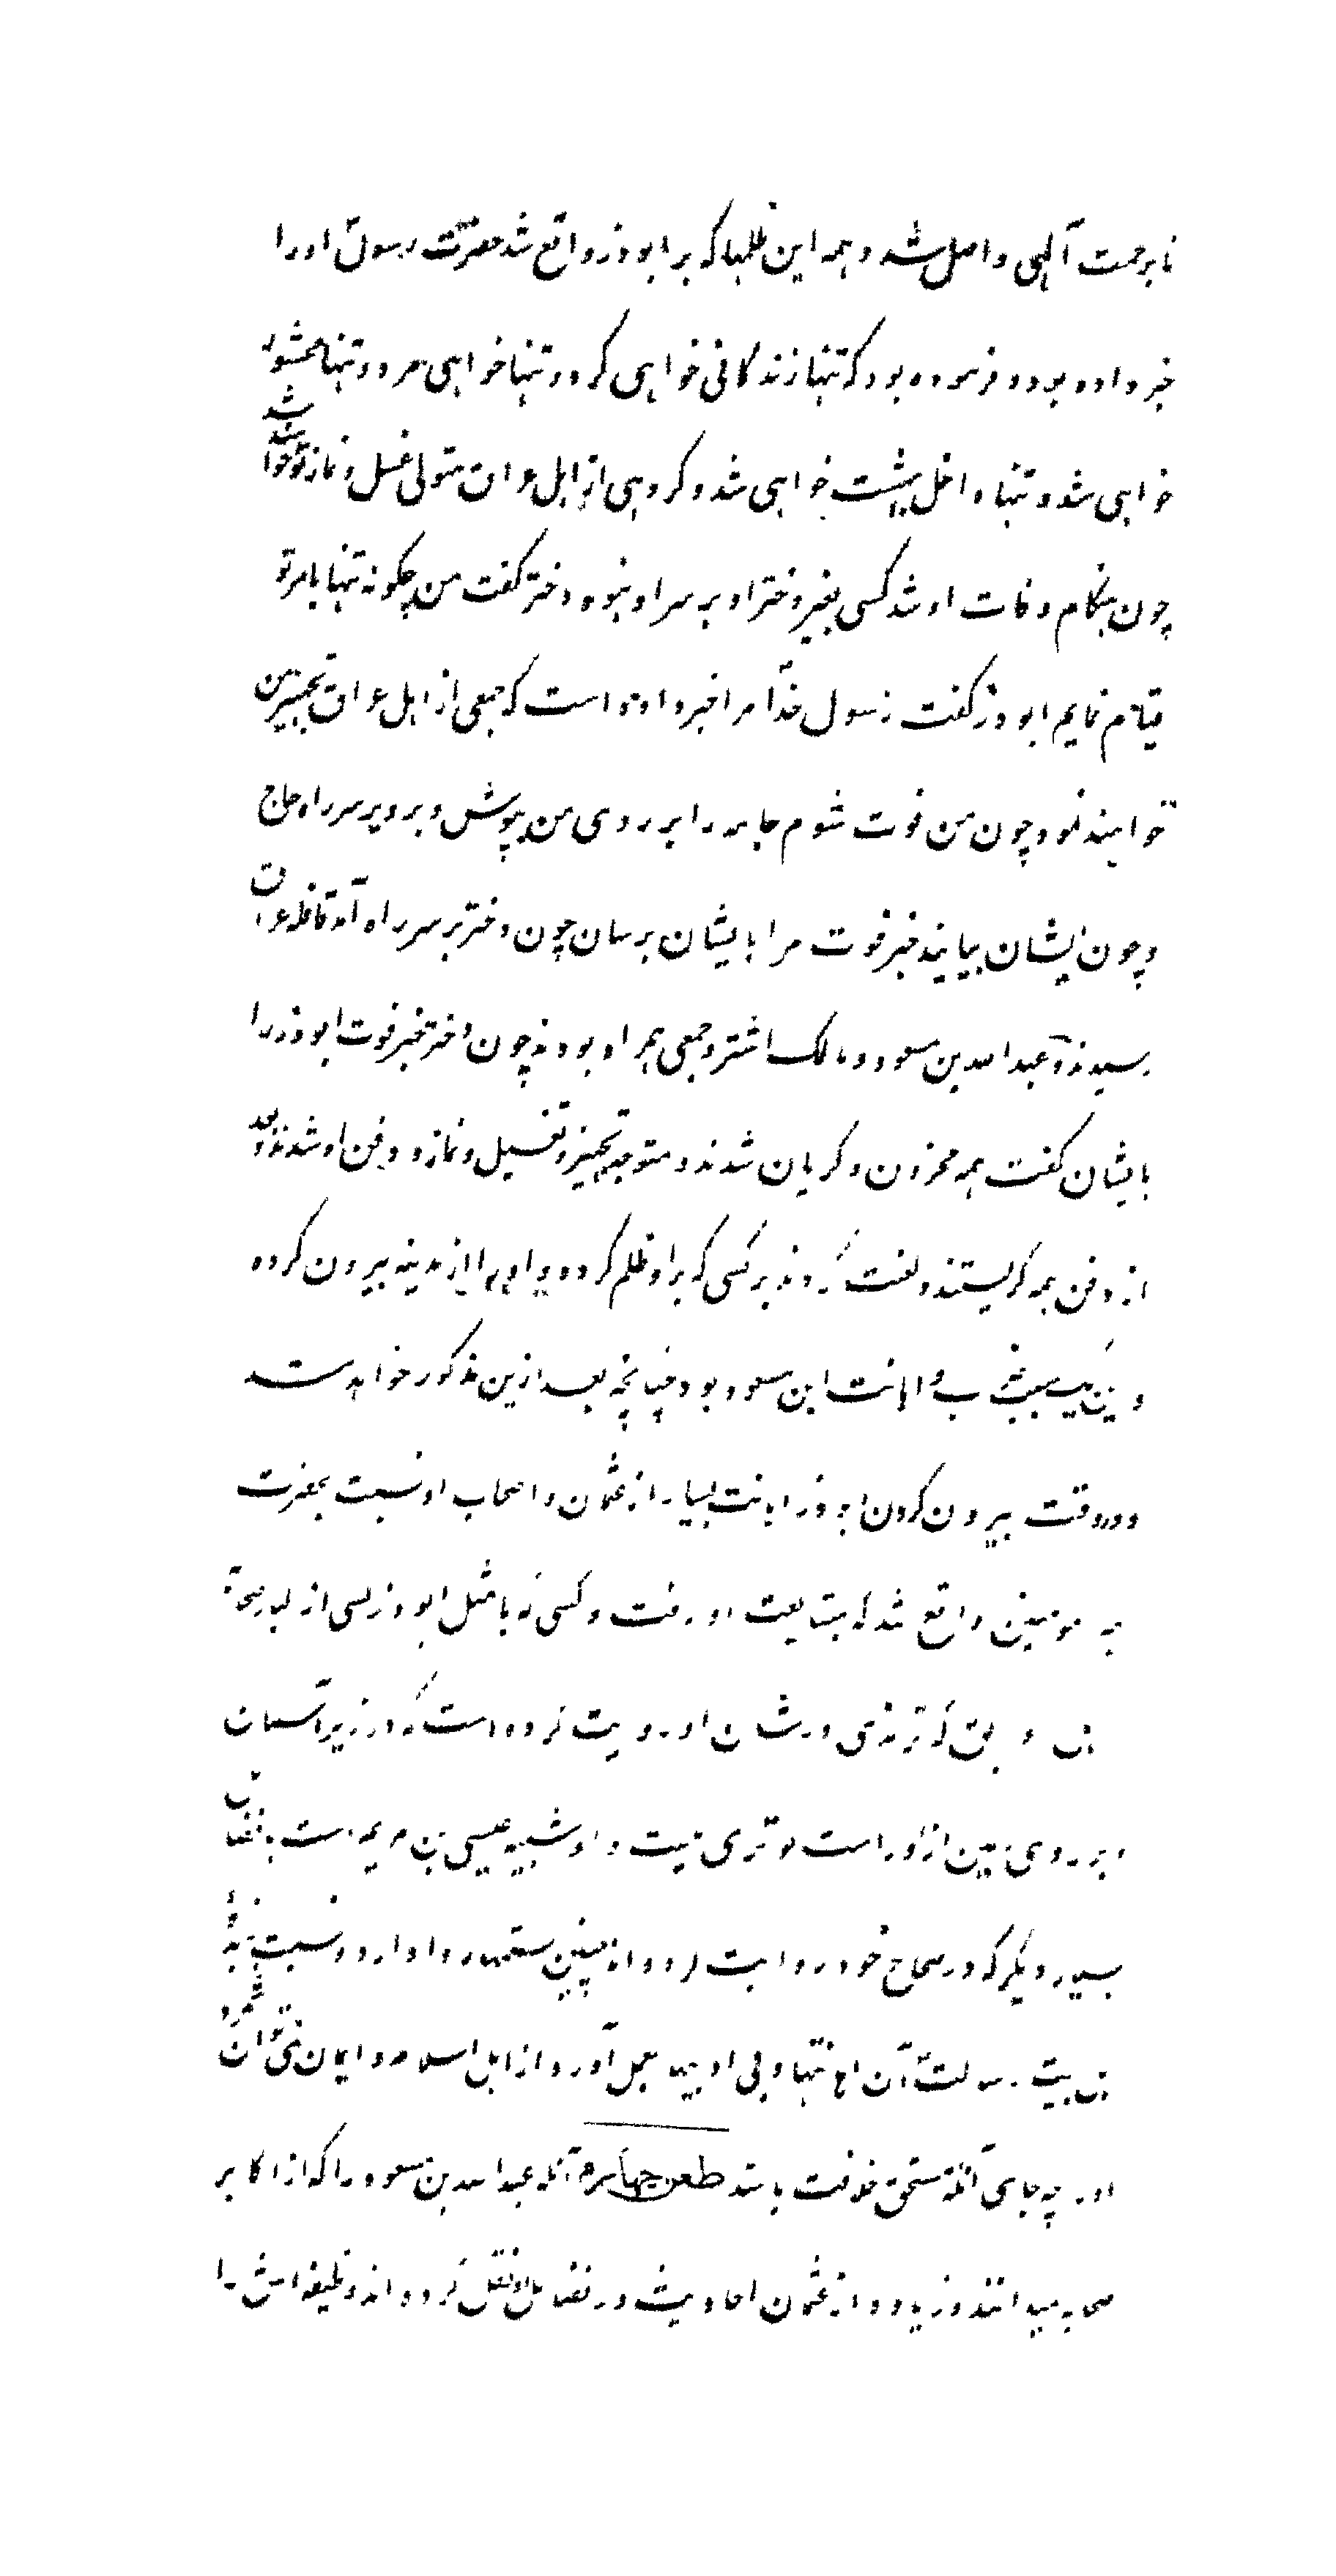 تا برحمت آلهی واصل شد و همه این ظلمها که بر ابوذر واقع شد حضرت رسول اورا
خبر داده بود و فرموده بود که تنها زندگانی خواهی کرد و تنها خواهی مرد و تنها محشور
خواهی شد و تنها داخل بهشت خواهی شد و گروهی از اهل عراق متولی غسل و نماز تو خواهند شد
چون هنگام وفات او شد کسی بغیر دختر او بر سر او نبود دختر گفت من چگونه تنها بامر تو
قیام نمایم ابوذر گفت رسول خدا مرا خبر داده است که جمعی از اهل عراق تجهیز من
خواهند نمود چون من فوت شوم جامه را بر روی من بپوش و برو بر سر راه حاج
و چون ایشان بیایند خبر فوت مرا بایشان برسان چون دختر بر سر راه آمد قافله عراق
رسیدند و عبدالله بن مسعود و مالک اشتر و جمعی همراه او بودند چون دختر خبر فوت ابوذر را
بایشان گفت همه محزون و گریان شدند و متوجه تجهیز و تغسیل و نماز و دفن او شدند و بعد
از دفن همه گریستند و لعنت کردند بر کسی که بر او ظلم کرده و او را از مدینه بیرون کرده
و این یک سبب ضرب و اهانت ابن مسعود بود چنانچه بعد ازین مذکور خواهد شد
و در وقت بیرون کردن ابوذر اهانت بسیار از عثمان و اصحاب او نسبت بحضرت
امیرمؤمنین واقع شد که بمشایعت او رفت و کسی که با مثل ابوذر کسی از کبار صحابه
که ترمذی در شان او روایت کرده است که در زیر آسمان
و بر روی زمین از او راست گوتری نیست و او شبیه عیسی بن مریم است با فضایل
بسیار دیگر که در صحاح خود روایت کرده اند چنین ستمها روا دارد و نسبت
بیت رسالت آن اهانتها و بی ادبیها بعمل آورد از اهل اسلام و ایمان نمی توان شمرد
او را چه جای آنکه مستحق خلافت باشد طعن چهارم آنکه عبدالله بن مسعود را که از اکابر
صحابه میدانند و زیاده از عثمان احادیث در فضایل او نقل کرده اند و خلیفه اش را